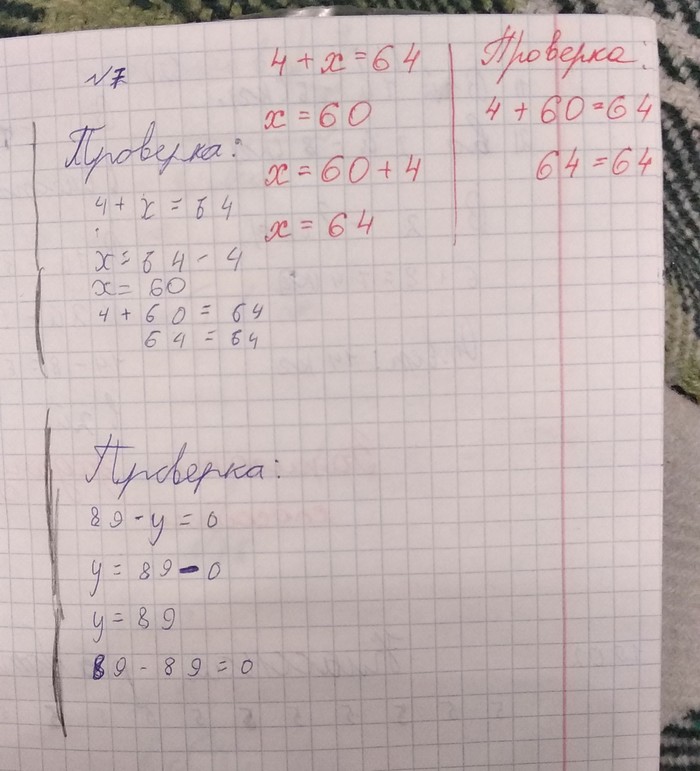 №7
Проверка:
4 + x = 64
x = 64 - 4
x = 60
4 + 60 = 64
64 = 64
4 + x = 64
x = 60
x = 60 + 4
x = 64
Проверка:
4 + 60 = 64
64 = 64
Проверка:
89 - y = 0
y = 89 - 0
y = 89
89 - 89 = 0